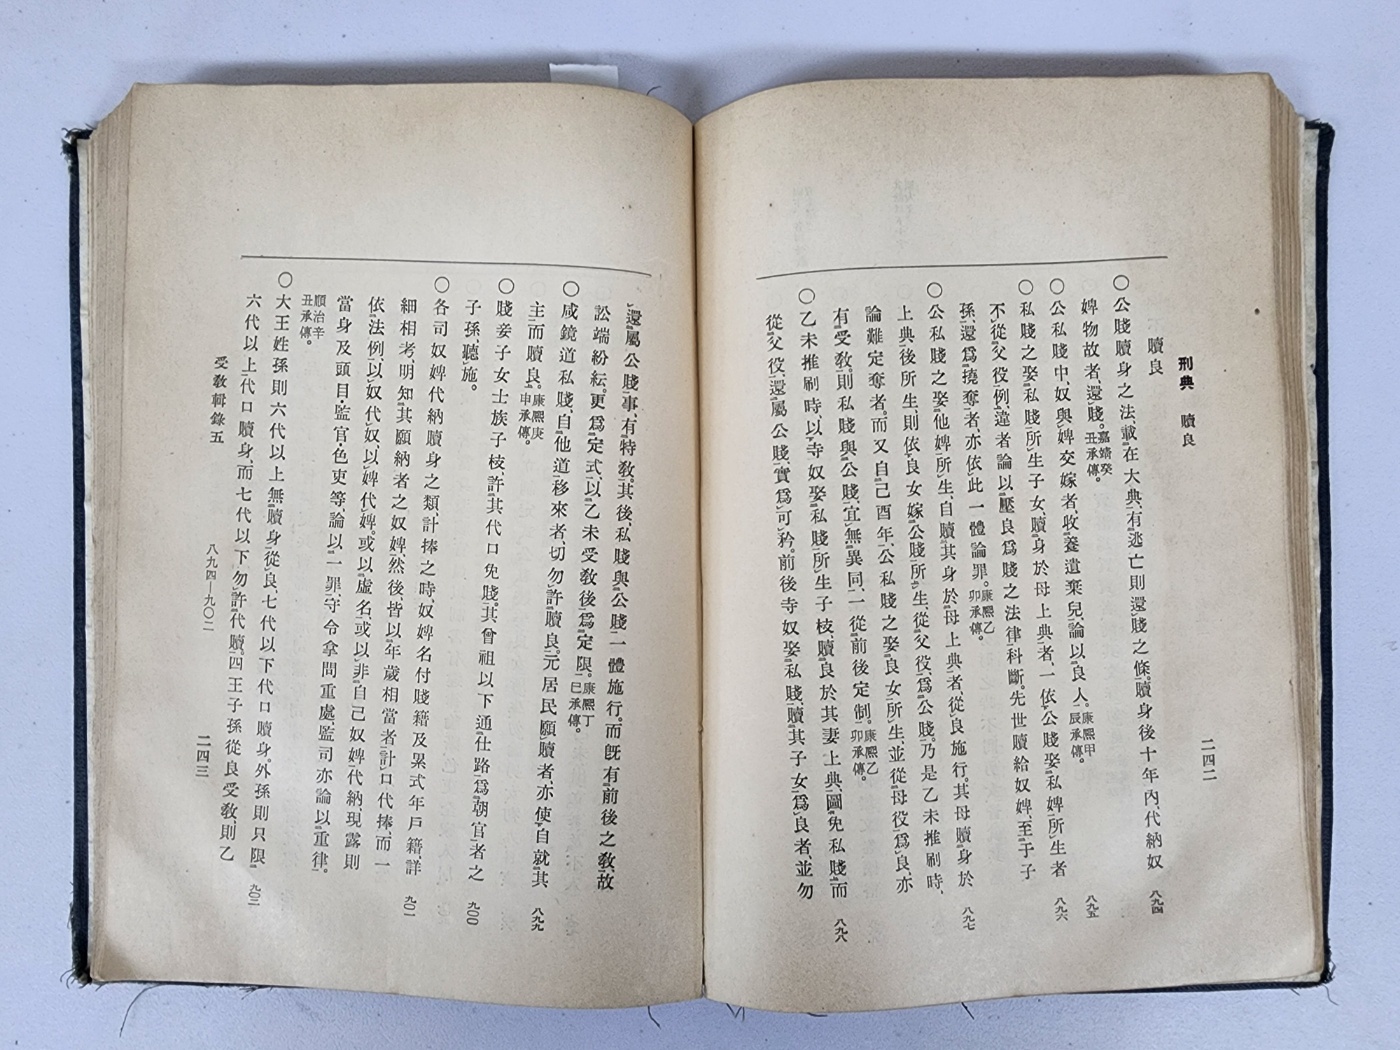 刑典 贖良
二四二
贖良
〇公賤贖身之法、載在大典、有逃亡則還賤之條。贖身後十年內、代納奴 八九四
婢物故者、還賤。嘉靖癸丑承傳。 八九五
〇公私賤中、奴與婢交嫁者、收養遺棄兒、論以良人。康熙甲辰承傳。
〇私賤之娶私賤所生子女、贖身於母上典者、一依公賤娶私婢所生者 八九六
不從父役例、違者論以壓良爲賤之法律科斷。先世贖給奴婢、至于子
孫、還爲撓奪者、亦依此一體論罪。康熙乙卯承傳。
〇公私賤之娶他婢所生、自贖其身於母上典者、從良施行。其母贖身於 八九七
上典後所生、則依良女嫁公賤所生、從父役爲公賤。乃是乙未推刷時、
論難定奪者。而又自己酉年、公私賤之娶良女所生、並從母役爲良、亦
有受教。則私賤與公賤、宜無異同、一從前後定制。康熙乙卯承傳。
〇乙未推刷時、以寺奴娶私賤所生子枝、贖良於其妻上典、圖免私賤而 八九八
從父役、還屬公賤、實爲可矜。前後寺奴娶私賤、贖其子女爲良者、並勿
還屬公賤事、有特教。其後、私賤與公賤一體施行。而旣有前後之教、故
訟端紛紜。更爲定式、以乙未受教後爲定限。康熙丁巳承傳。
〇咸鏡道私賤、自他道移來者、切勿許贖良。元居民願贖者、亦使自就其 八九九
主而贖良。康熙庚申承傳。
〇賤妾子女、士族子枝、許其代口免賤。其曾祖以下通仕路爲朝官者之 九〇〇
子孫、聽施。
〇各司奴婢代納贖身之類、計捧之時、奴婢名付賤籍及累式年戶籍、詳 九〇一
細相考、明知其願納者之奴婢、然後、皆以年歲相當者、計口代捧、而一
依法例、以奴代奴、以婢代婢。或以虛名、或以非自己奴婢代納、現露則
當身及頭目・監官・色吏等、論以一罪、守令拿問重處、監司亦論以重律。
順治辛丑承傳。
〇大王姓孫則六代以上無贖身從良、七代以下代口贖身。外孫則只限 九〇二
六代以上代口贖身、而七代以下勿許代贖。四王子孫從良受教、則乙
受教輯錄五
八九四―九〇二
二四三